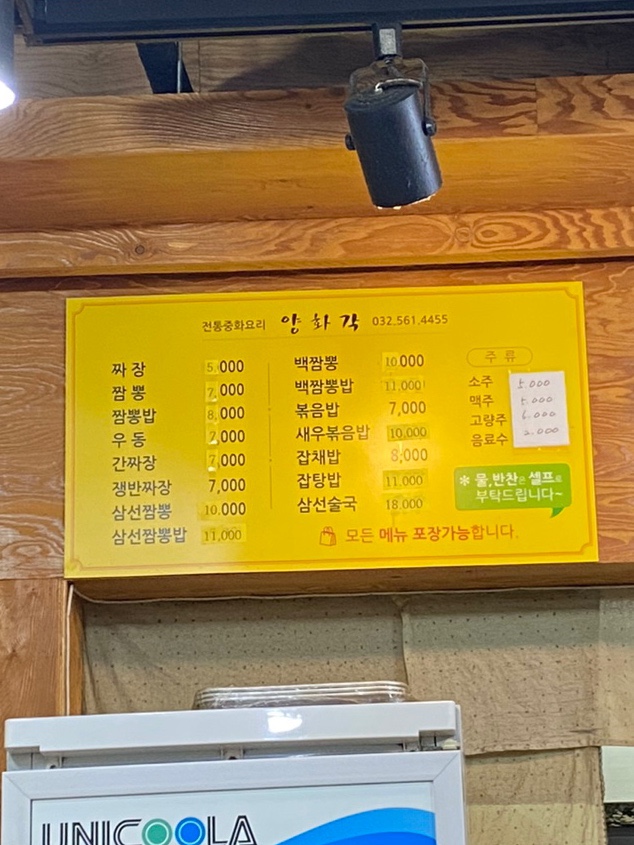 전통중화요리 양화각 032.561.4455
짜장 5,000
짬뽕 7,000
짬뽕밥 8,000
우동 7,000
간짜장 7,000
쟁반짜장 7,000
삼선짬뽕 10,000
삼선짬뽕밥 11,000
백짬뽕 10,000
백짬뽕밥 11,000
볶음밥 7,000
새우볶음밥 10,000
잡채밥 8,000
잡탕밥 11,000
삼선술국 18,000
모든 메뉴 포장가능합니다.
주류
소주 5.000
맥주 5.000
고량주 6.000
음료수 2.000
* 물,반찬은 셀프로
부탁드립니다~
UNICOOLA